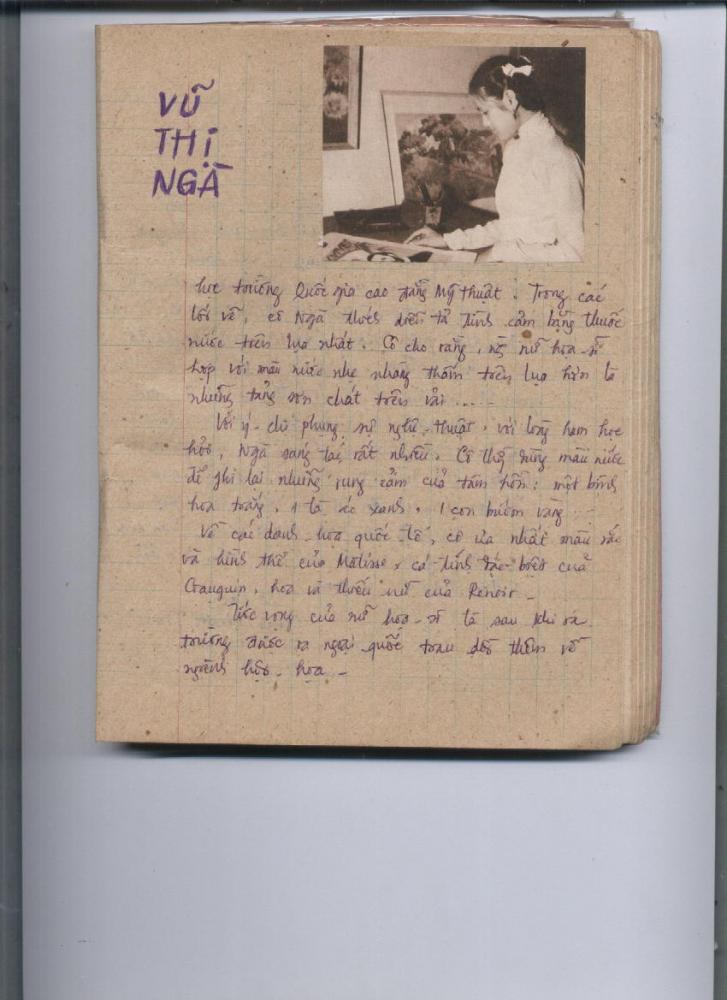 VŨ
THỊ
NGÀ
học trường Quốc gia cao đẳng Mỹ thuật. Trong các
lối vẽ, cô Ngà thích diễn tả tình cảm bằng thuốc
nước trên lụa nhất. Cô cho rằng, nữ họa-sĩ
hợp với mầu nước nhẹ nhàng thấm trên lụa hơn là
những tảng sơn chát trên vải ....
Với ý-chí phụng sự nghệ-thuật, với lòng ham học
hỏi, Ngà sáng tác rất nhiều. Cô thg dùng mầu nước
để ghi lại những rung cảm của tâm hồn: một bình
hoa trắng, 1 lá úc xanh, 1 con bướm vàng ...
Về các danh-họa quốc tế, cô ưa nhất mầu sắc
và hình thể của Matisse, cá tính đặc-biệt của
Gauguin, hoa và thiếu nữ của Renoir -
Ước vọng của nữ họa-sĩ là sau khi ra
trường được ra ngoại quốc trau dồi thêm về
ngành hội-họa -